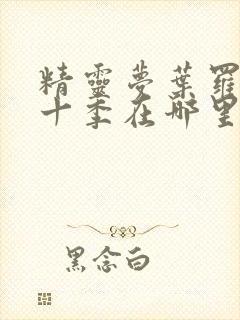 精靈夢葉羅
十季在哪里
黑念白